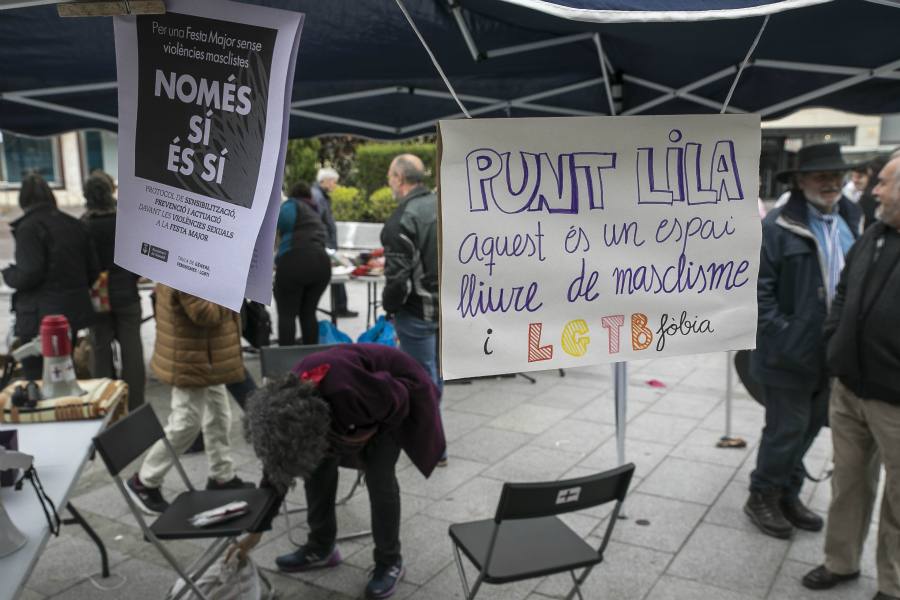 Per una Festa Major sense
violències masclistes
NOMÉS
SÍ
ÉS SÍ
PROTOCOL DE SENSIBILITZACIÓ,
PREVENCIÓ I ACTUACIÓ
DAVANT LES VIOLÈNCIES SEXUALS
A LA FESTA MAJOR
PUNT LILA
aquest és un espai
lliure de masclisme
i LGTBfòbia